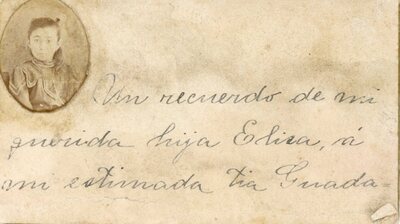 Un recuerdo de mi
querida hija Elisa, á
mi estimada tia Guada-